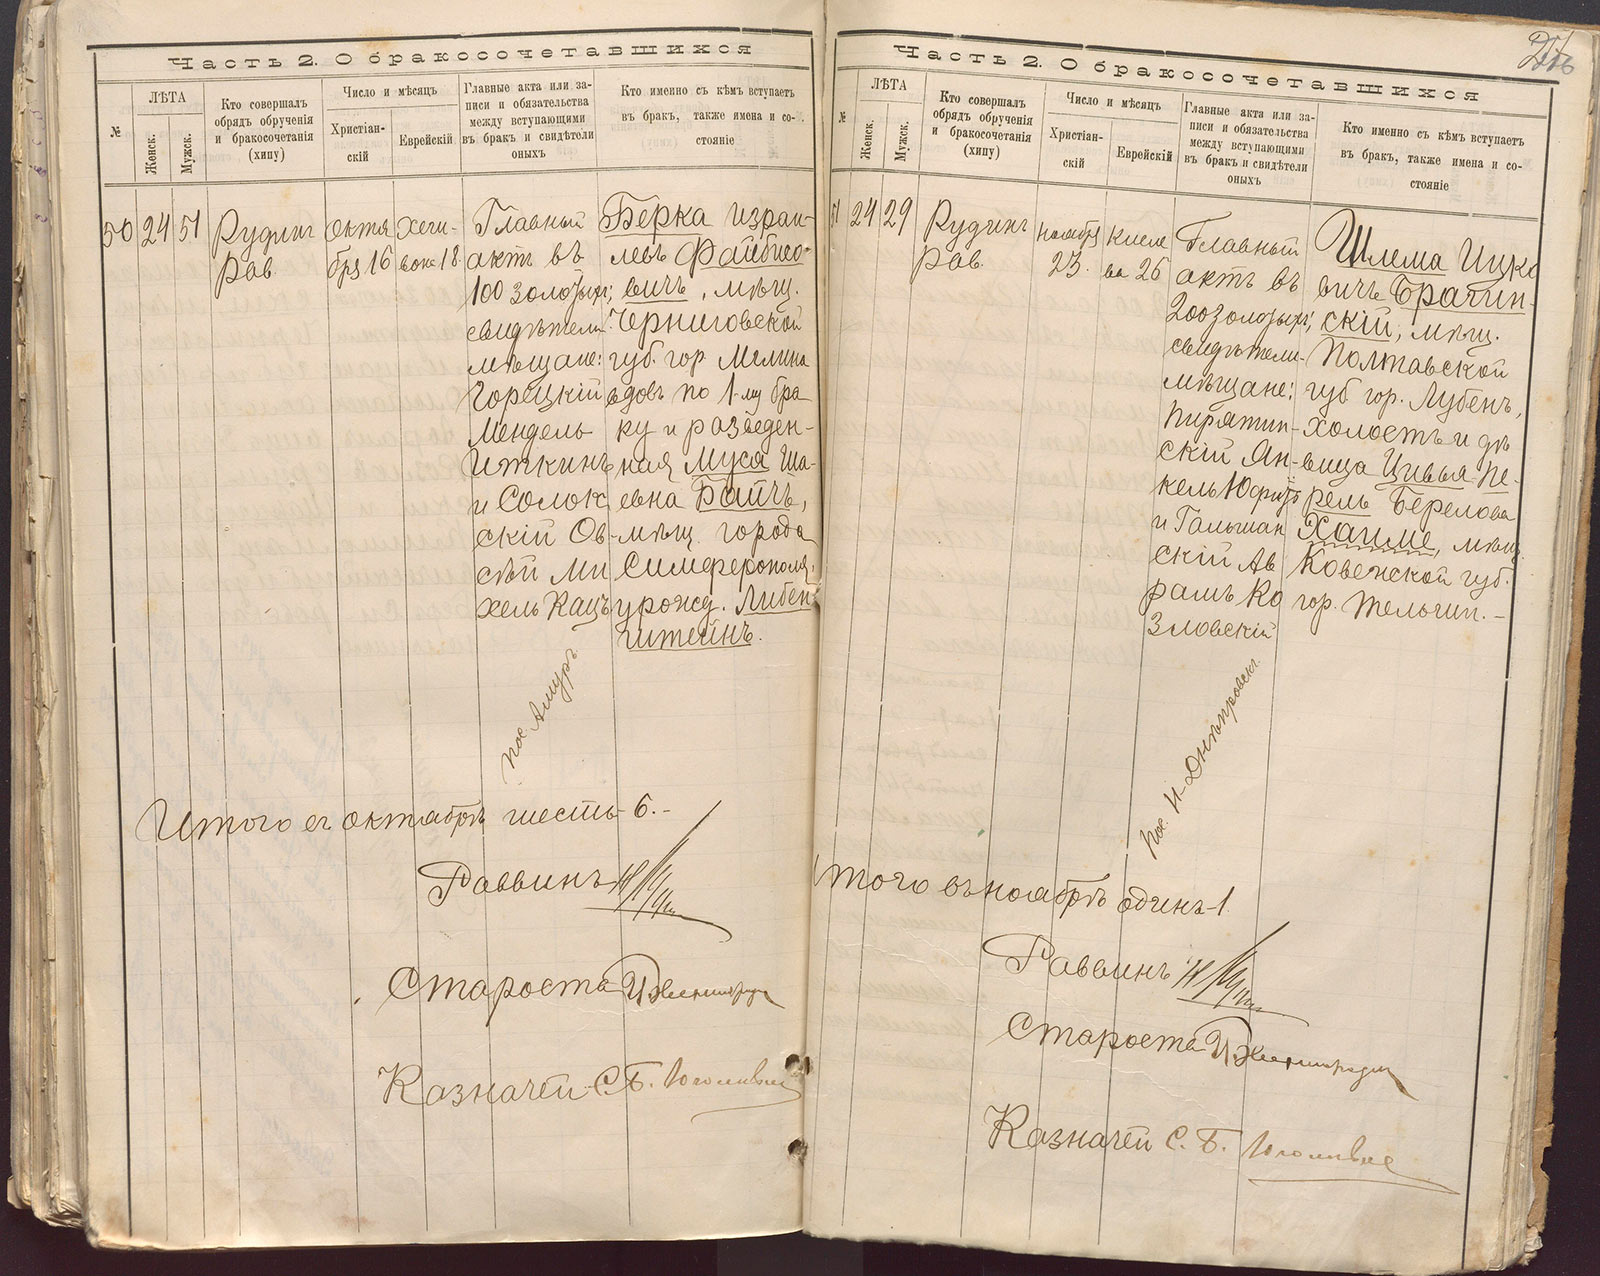 Часть 2. О бракосочетавшихся
№
ЛѢТА
Женск.
Мужск.
Кто совершалъ
обрядъ обрученія
и бракосочетанія
(хипу)
Число и мѣсяцъ
Христіан-
скій
Еврейскій
Главные акта или за-
писи и обязательства
между вступающими
въ бракъ и свидѣтели
оныхъ
Кто именно съ кѣмъ вступаетъ
въ бракъ, также имена и со-
стояніе
50
24
51
Рудинъ
Рав.
Октя
бря 16
18
Главный
актъ въ
100 золотыхъ;
свидѣтели
мѣщане:
Горецкій
Мендель
Иткинъ
и Солок
скій Ов-
сѣй Ми
хель Кацъ
Берка Израи-
левъ Файбисо-
вичъ, мѣщ.
Черниговской
губ. гор Мглина
вдовъ по 1-му бра
ку и разведен-
ная Муся Ша-
евна Байчъ,
мѣщ. города
Симферополя,
урожд. Либен-
штейнъ.
пос Амуръ
Итого въ октябрѣ шесть 6.-
Раввинъ
Староста
Казначей С. Б.
Часть 2. О бракосочетавшихся
№
ЛѢТА
Женск.
Мужск.
Кто совершалъ
обрядъ обрученія
и бракосочетанія
(хипу)
Число и мѣсяцъ
Христіан-
скій
Еврейскій
Главные акта или за-
писи и обязательства
между вступающими
въ бракъ и свидѣтели
оныхъ
Кто именно съ кѣмъ вступаетъ
въ бракъ, также имена и со-
стояніе
51
24
29
Рудинъ
Рав.
Ноября
23.
Кисле
ва 26
Главный
актъ въ
200 золотыхъ;
свидѣтели-
мѣщане:
Пирятин-
скій Ян-
кель Юфитъ
и Гальшан
скій Ав
рамъ Ко
зловскій
Шлема Ицко
вичъ Брагин-
скій, мѣщ.
Полтавской
губ гор. Лубенъ,
холостъ и дѣ
вица Цивья-Пе-
рель Берелова
Хаимъ, мѣщ.
Ковенской губ.
гор. Тельшъ. -
пос. Н-Днѣпровскъ
Итого въ ноябрѣ одинъ-1.
Раввинъ
Староста
Казначей С. Б.